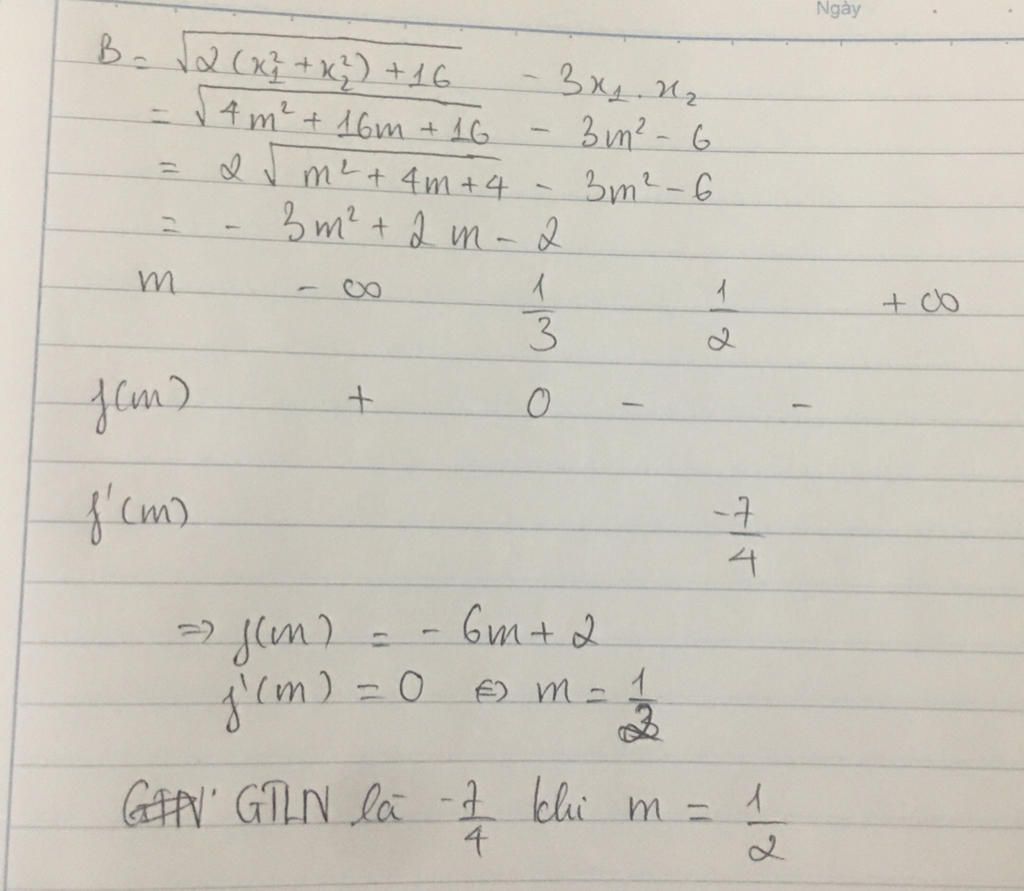 Ngày
B = √(2(x₁² + x₂²) + 16) - 3x₁.x₂
= √(4m² + 16m + 16) - 3m² - 6
= 2√(m² + 4m + 4) - 3m² - 6
= - 3m² + 2m - 2
m - ∞ 1/3 1/2 + ∞
f(m) + 0 - -
f'(m) -7/4
=> f(m) = - 6m + 2
f'(m) = 0 ⇔ m = 1/3
GTLN là -7/4 khi m = 1/2